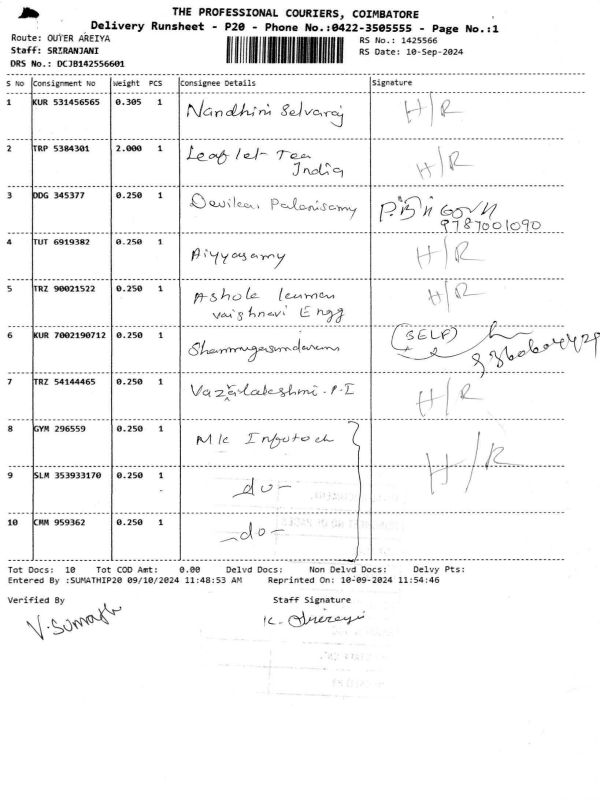 THE PROFESSIONAL COURIERS, COIMBATORE
Delivery Runsheet - P20 - Phone No.:0422-3505555 - Page No.:1
Route: OUTER AREIYA
RS No.: 1425566
Staff: SRIRANJANI
RS Date: 10-Sep-2024
DRS No.: DCJB142556601
S No Consignment No Weight PCS Consignee Details Signature
1 KUR 531456565 0.305 1 Nandhini Selvaraj H/R
2 TRP 5384301 2.000 1 Leaf let Tea H/R
India
3 DDG 345377 0.250 1 Devikai Palanisamy
9787001090
4 TUT 6919382 0.250 1 Aiyyasamy H/R
5 TRZ 90021522 0.250 1 Ashok kumar H/R
vaishnavi Engg
6 KUR 7002190712 0.250 1 Shanmugasundaram (SELF)
7 TRZ 54144465 0.250 1 H/R
8 GYM 296559 0.250 1 MK Infotech H/R
9 SLM 353933170 0.250 1 -do-
10 CMM 959362 0.250 1 -do-
Tot Docs: 10 Tot COD Amt: 0.00 Delvd Docs: Non Delvd Docs: Delvy Pts:
Entered By :SUMATHIP20 09/10/2024 11:48:53 AM Reprinted On: 10-09-2024 11:54:46
Verified By Staff Signature
V. Sumathi